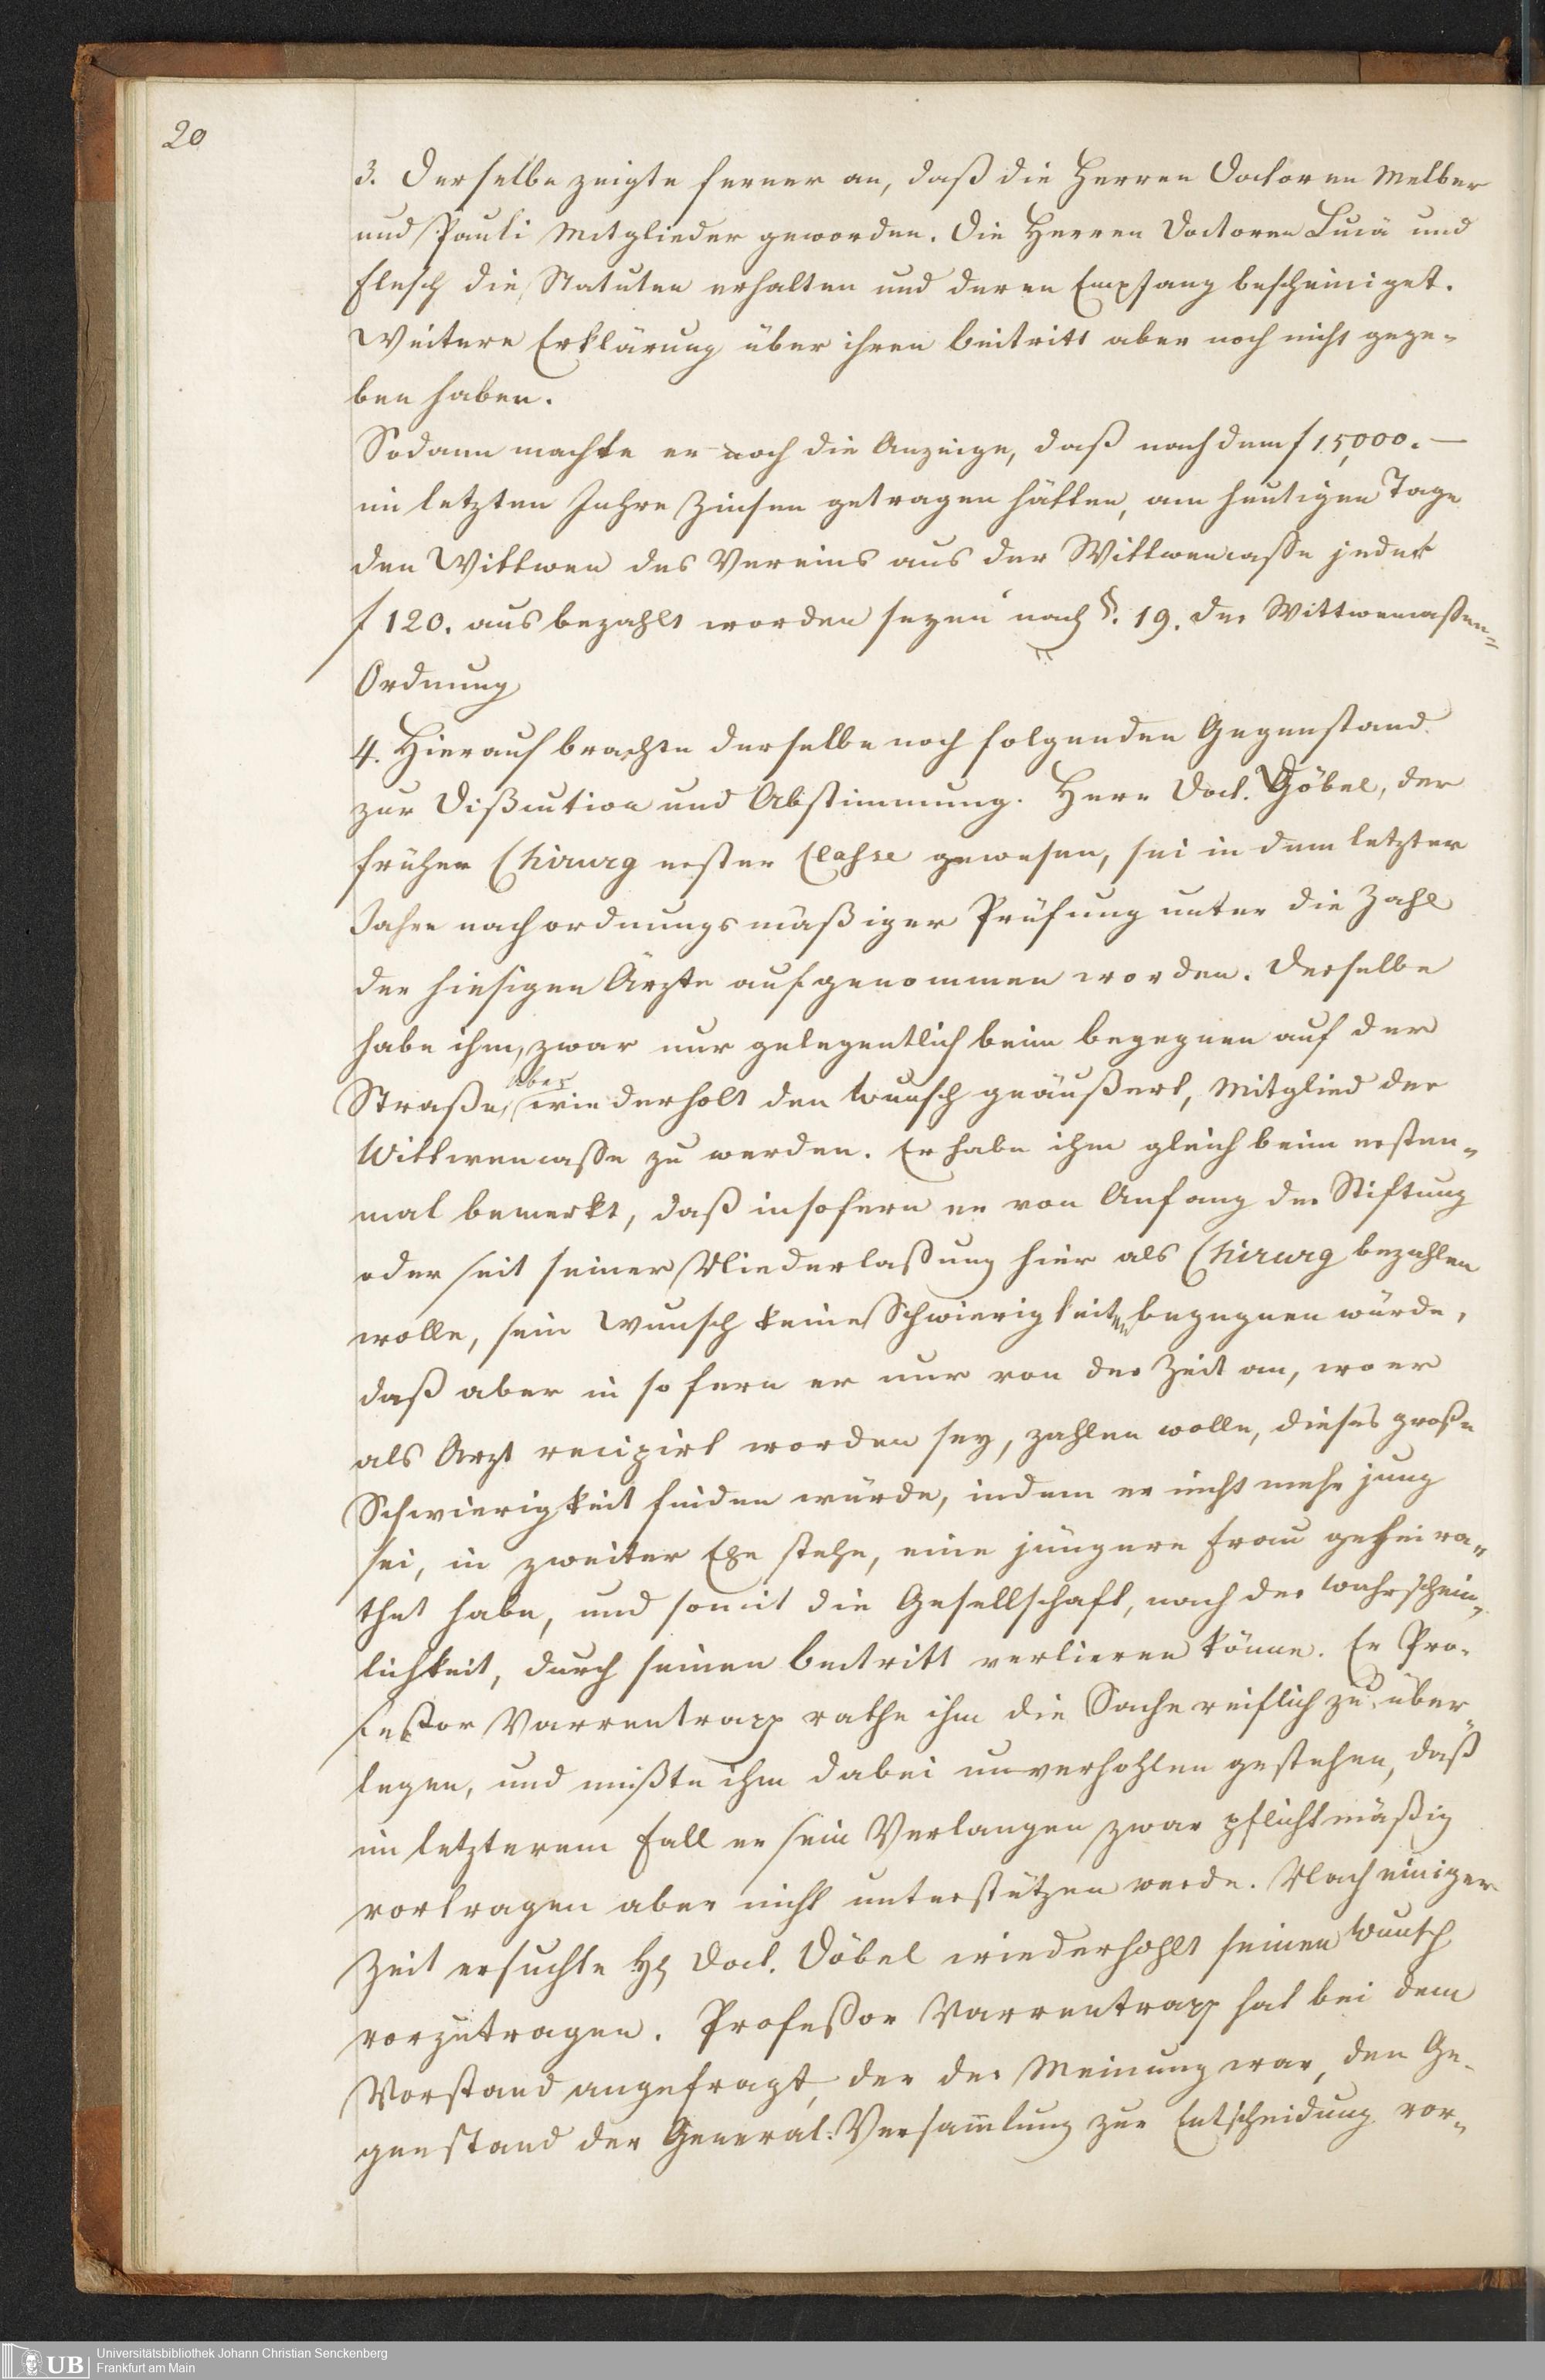 20
3. Derselbe zeigte ferner an, daß die Herren Doctoren Melber
und Pauli Mitglieder geworden. Die Herren Doctoren Lucä und
Flesch die Statuten erhalten und deren Empfang bescheiniget.
Weitere Erklärung über ihren Beitritt aber noch nicht gege-
ben haben.
Sodann machte er noch die Anzeige, daß nachdem f 15,000.—
im letzten Jahre Zinsen getragen hätten, am heutigen Tage
den Wittwen des Vereins aus der Wittwencasse jeder
f 120. ausbezahlt worden seyen nach §. 19. der Wittwencassen-
Ordnung
4. Hierauf brachte derselbe noch folgenden Gegenstand
zur Dißcution und Abstimmung. Herr Doct. Döbel, der
früher Chirurg erster Classe gewesen, sei in dem letzten
Jahre nach ordnungsmäßiger Prüfung unter die Zahl
der hiesigen Ärzte aufgenommen worden. Derselbe
habe ihm, zwar nur gelegentlich beim begegnen auf der
Straße, aber wiederholt den Wunsch geäußert, Mitglied der
Wittwencasse zu werden. Er habe ihm gleich beim ersten-
mal bemerkt, daß insofern er von Anfang der Stiftung
oder seit seiner Niederlaßung hier als Chirurg bezahlen
wolle, sein Wunsch keine Schwierigkeiten begegnen würde,
daß aber in so fern er nur von der Zeit an, wo er
als Arzt recipirt worden sey, zahlen wolle, dieses große
Schwierigkeit finden würde, indem er nicht mehr jung
sei, in zweiter Ehe stehe, eine jüngere Frau geheira-
thet habe, und somit die Gesellschaft, nach der Wahrschein-
lichkeit, durch seinen Beitritt verlieren könne. Er Pro-
fessor Varrentrapp rathe ihm die Sache reiflich zu über-
legen, und müßte ihm dabei unverhohlen gestehen, daß
im letzterem Fall er sein Verlangen zwar pflichtmäßig
vortragen aber nicht unterstützen werde. Nach einiger
Zeit ersuchte H. Doct. Döbel wiederhohlt seinen Wunsch
vorzutragen. Professor Varrentrapp hat bei dem
Vorstand angefragt, der der Meinung war, den Ge-
genstand der General-Versam̄lung zur Entscheidung vor-
UB
Universitätsbibliothek Johann Christian Senckenberg
Frankfurt am Main